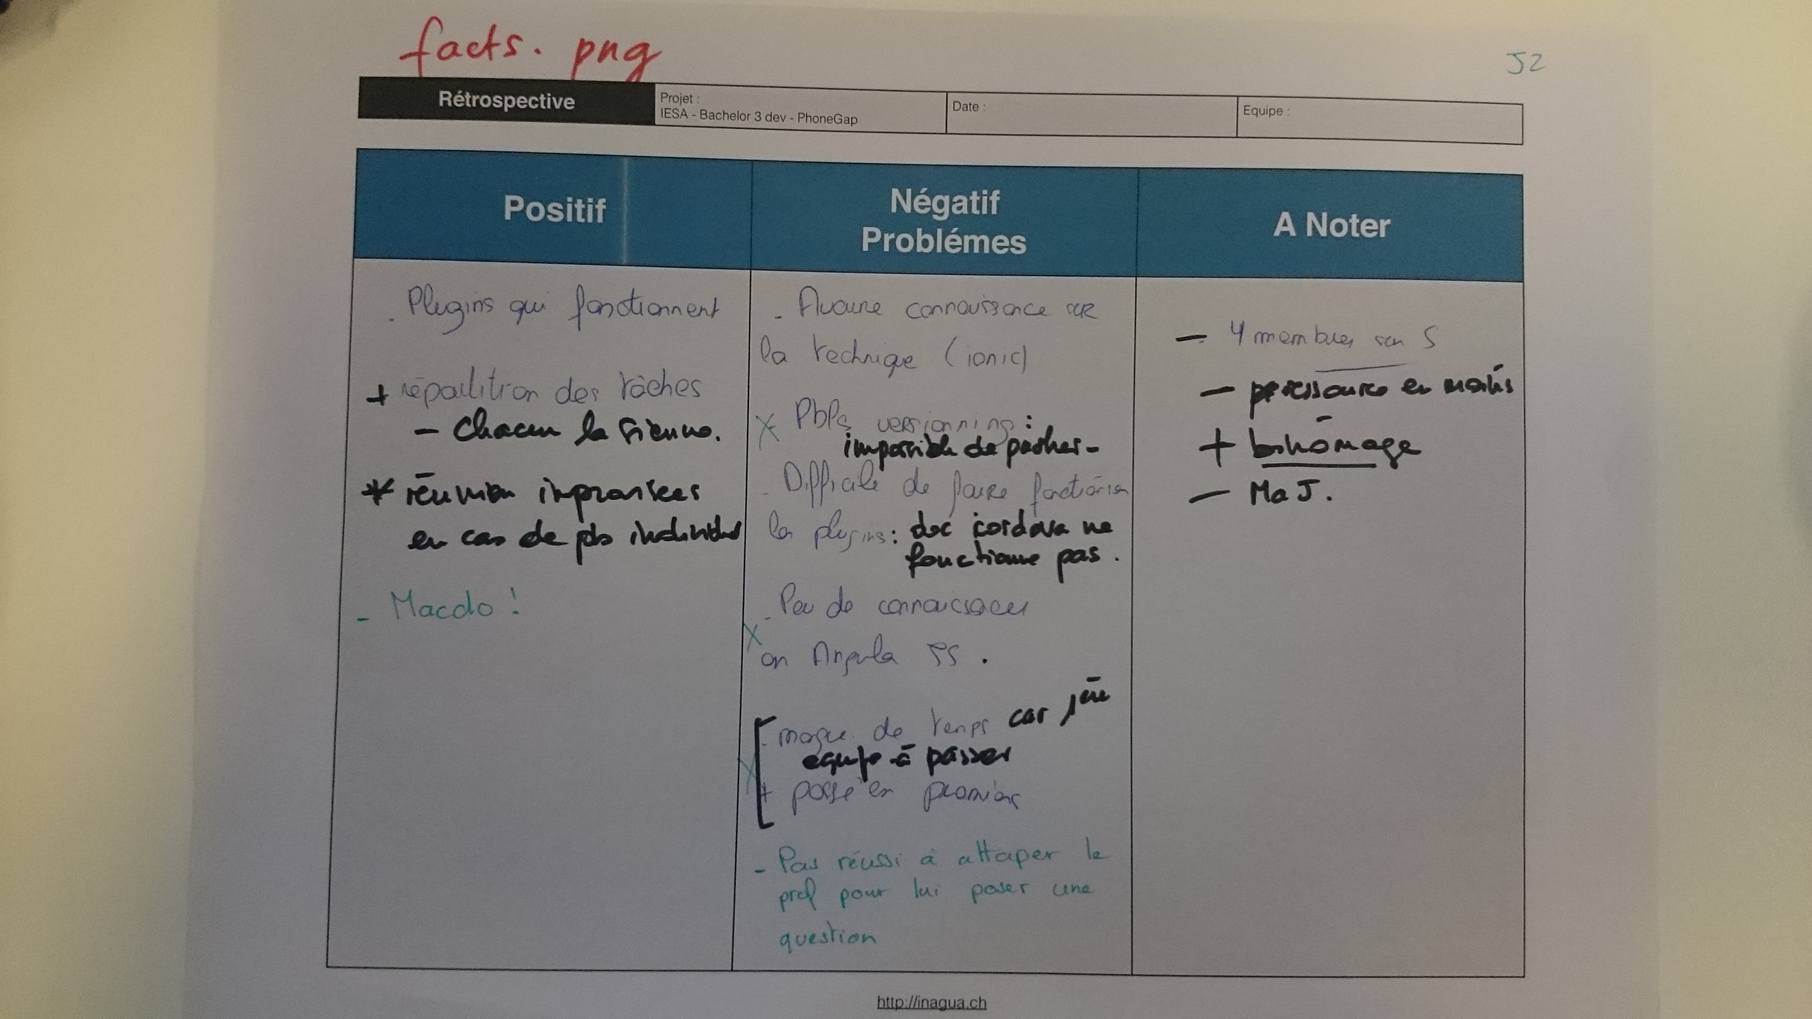 facts.png
J2
Rétrospective
Projet :
IESA - Bachelor 3 dev - PhoneGap
Date :
Equipe :
Positif
Négatif
Problémes
A Noter
- Plugins qui fonctionnent
+ répartition des tâches
- Chacun la sienne.
* réunion improvisées
en cas de pb individuel
- Macdo !
- Aucune connaissance sur
la technique (ionic)
x - Pbl versionning :
impossible de pusher -
- Difficile de faire fonctionner
les plugins : doc cordova ne
fonctionne pas.
- Peu de connaissances
x en Angula JS.
- manque de temps car 1ère
équipe à passer
+ passé en premier
- Pas réussi à attaper le
prof pour lui poser une
question
- 4 membres sur 5
- ressource en moins
+ binômage
- MaJ.
http://inagua.ch